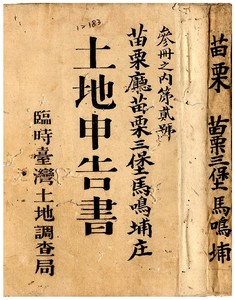 12183
參冊之內第貳號
苗栗廳苗栗三堡馬鳴埔庄
土地申告書
臨時臺灣土地調查局
苗栗 苗栗三堡馬鳴埔